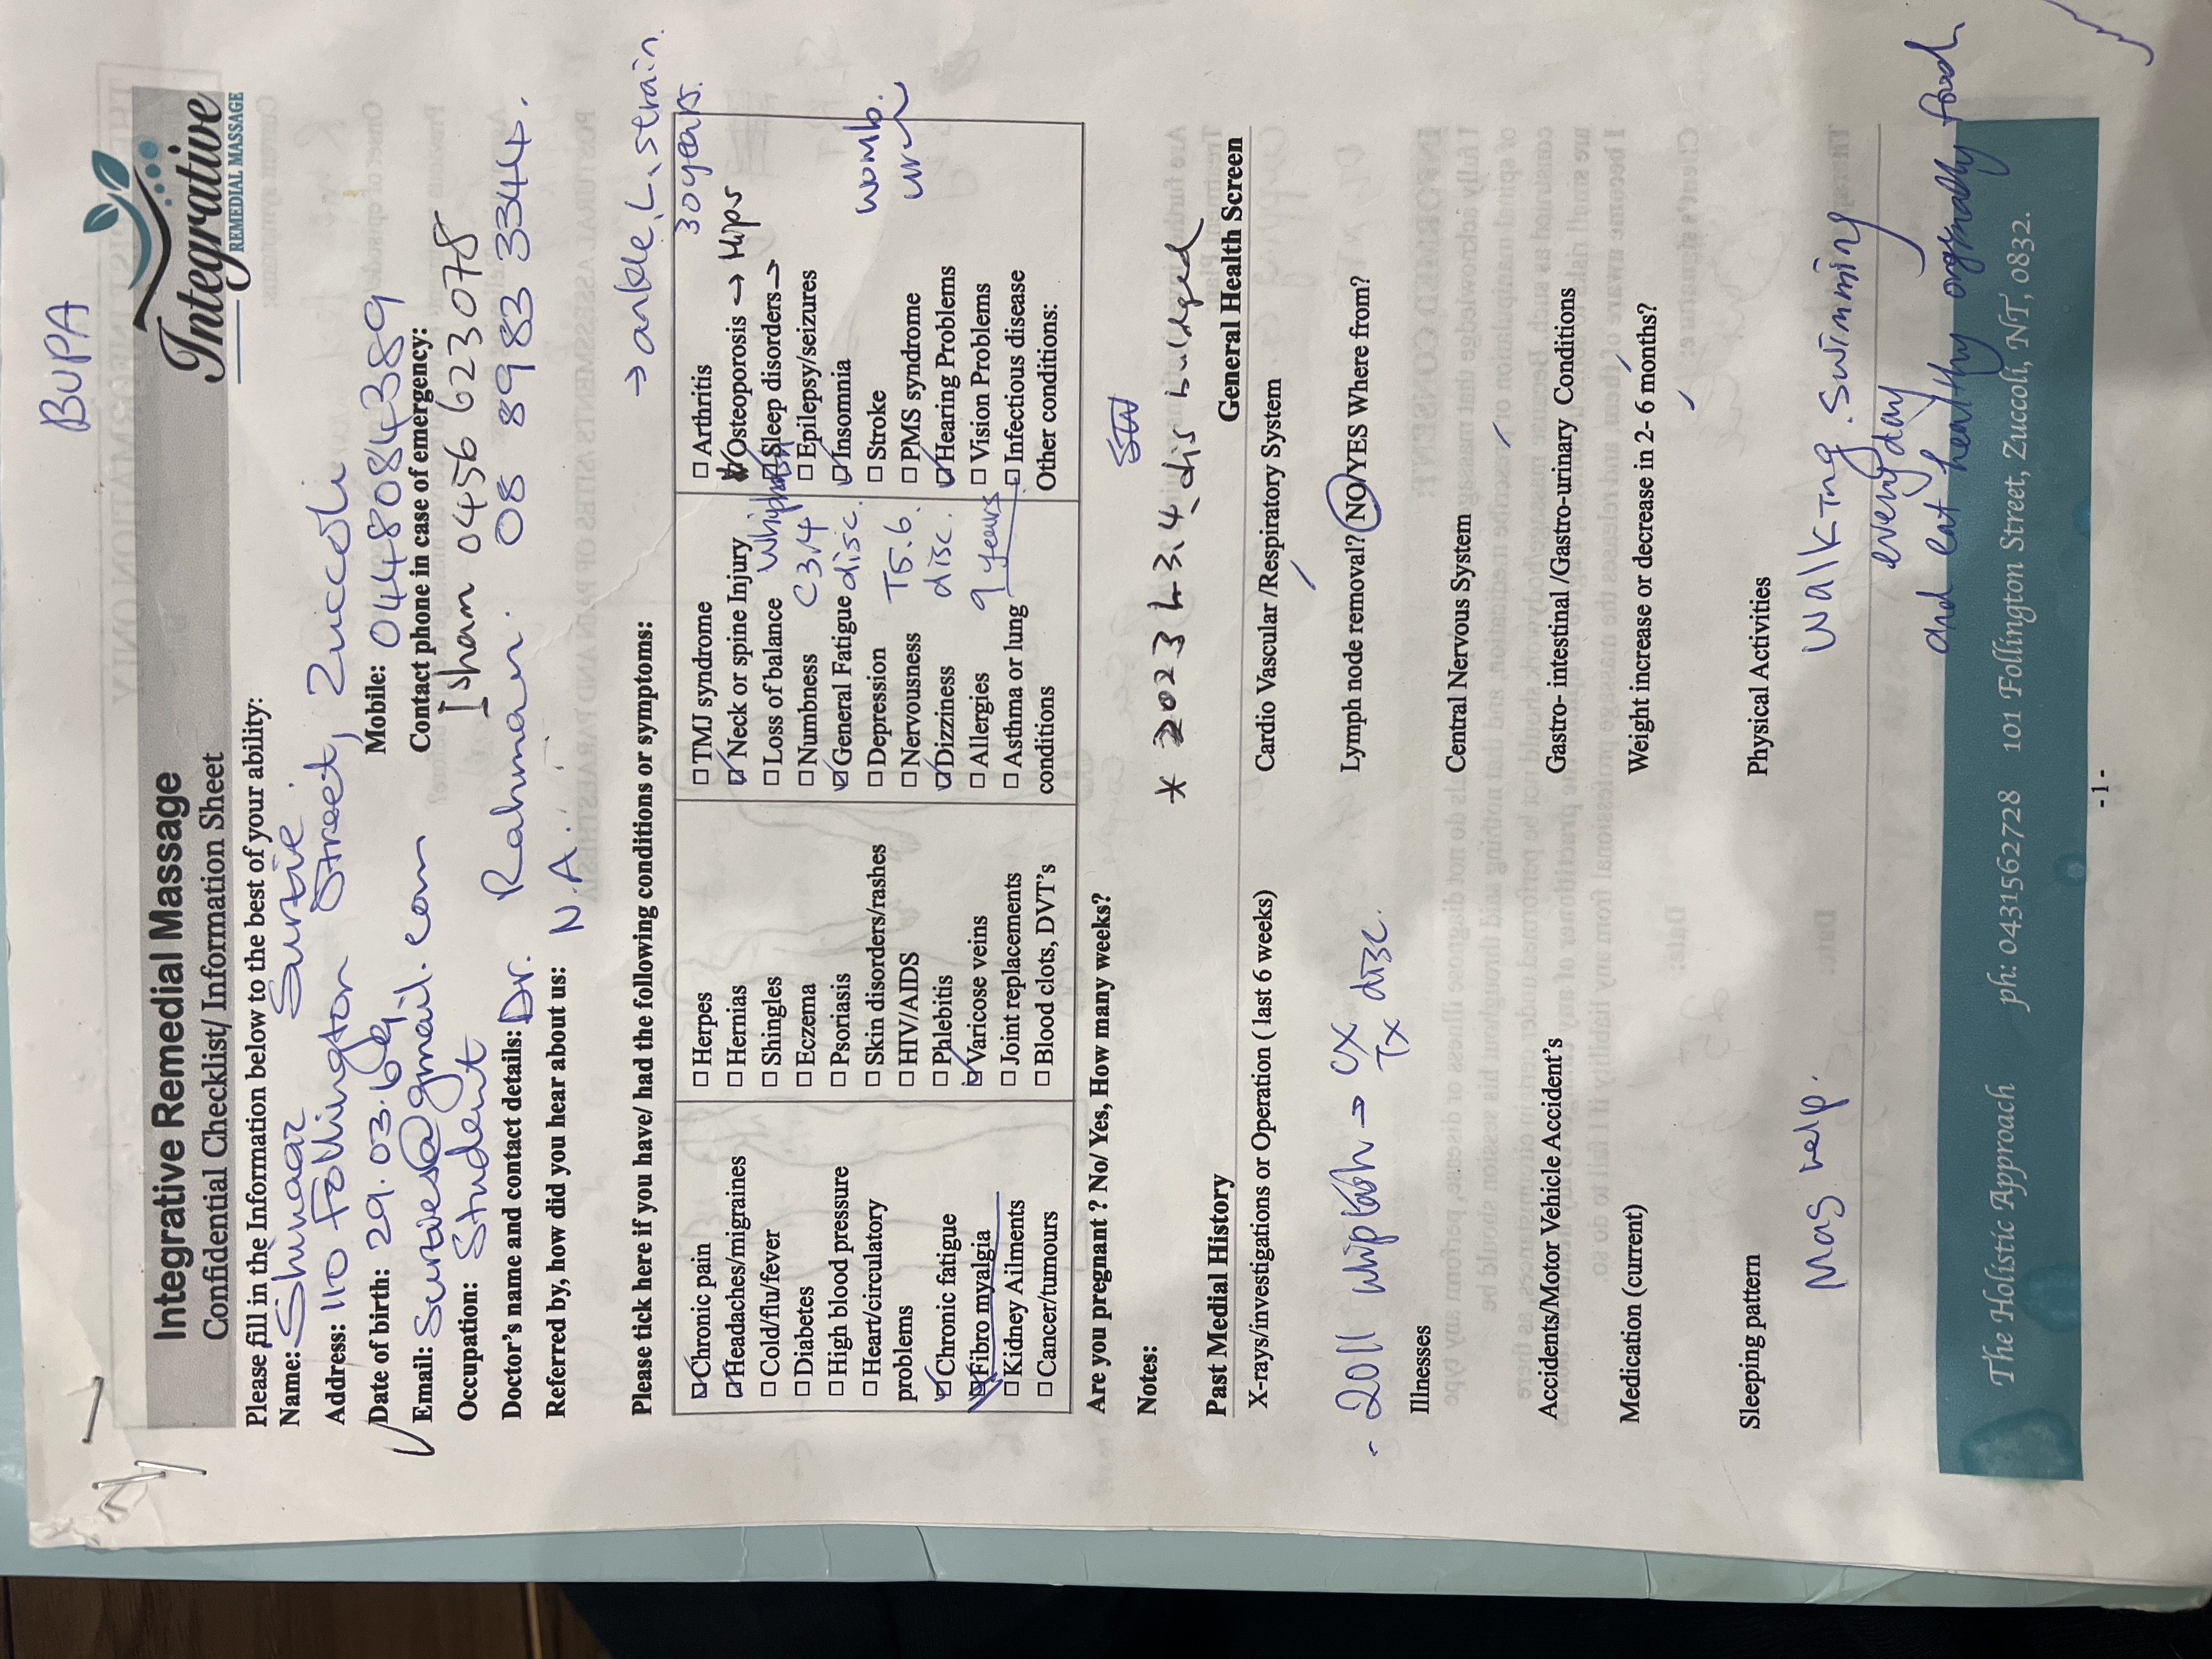 BUPA
Integrative Remedial Massage
Confidential Checklist/ Information Sheet
Integrative
REMEDIAL MASSAGE
Please fill in the Information below to the best of your ability:
Name: Shunaaz Survie.
Address: 110 Follington Street, Zuccoli
Date of birth: 29.03.69 Mobile: 0448084389
Email: Survies@gmail.com Contact phone in case of emergency:
Isham 0456 623 078
Occupation: Student
Doctor's name and contact details: Dr. Rahman. 08 8983 3344.
Referred by, how did you hear about us: N.A.
→ ankle, L, strain.
Please tick here if you have/ had the following conditions or symptoms:
30 years.
☑ Chronic pain ☐ Herpes ☐ TMJ syndrome ☐ Arthritis
☑ Headaches/migraines ☐ Hernias ☑ Neck or spine Injury whiplash ☑ Osteoporosis → Hips
☐ Cold/flu/fever ☐ Shingles ☐ Loss of balance ☑ Sleep disorders →
☐ Diabetes ☐ Eczema ☐ Numbness C3.4 ☐ Epilepsy/seizures
☐ High blood pressure ☐ Psoriasis ☑ General Fatigue disc. ☑ Insomnia womb.
☐ Heart/circulatory ☐ Skin disorders/rashes ☐ Depression T5.6. ☐ Stroke
problems ☐ HIV/AIDS ☐ Nervousness disc. ☐ PMS syndrome
☑ Chronic fatigue ☐ Phlebitis ☑ Dizziness ☑ Hearing Problems
☑ Fibro myalgia ☑ Varicose veins ☐ Allergies 9 years ☐ Vision Problems
☐ Kidney Ailments ☐ Joint replacements ☐ Asthma or lung ☐ Infectious disease
☐ Cancer/tumours ☐ Blood clots, DVT's conditions Other conditions:
Are you pregnant ? No/ Yes, How many weeks?
Notes: * 2023 L3.4. dis bulged
Past Medial History General Health Screen
X-rays/investigations or Operation ( last 6 weeks) Cardio Vascular /Respiratory System
- 2011 whiplash → CX
TX disc.
Lymph node removal? NO/YES Where from?
Illnesses Central Nervous System
Accidents/Motor Vehicle Accident's Gastro- intestinal /Gastro-urinary Conditions
Medication (current) Weight increase or decrease in 2- 6 months?
Sleeping pattern Physical Activities
Mag help. Walking. Swimming
everyday
and eat healthy orginally food
The Holistic Approach ph: 0431562728 101 Follington Street, Zuccoli, NT, 0832.
- 1 -